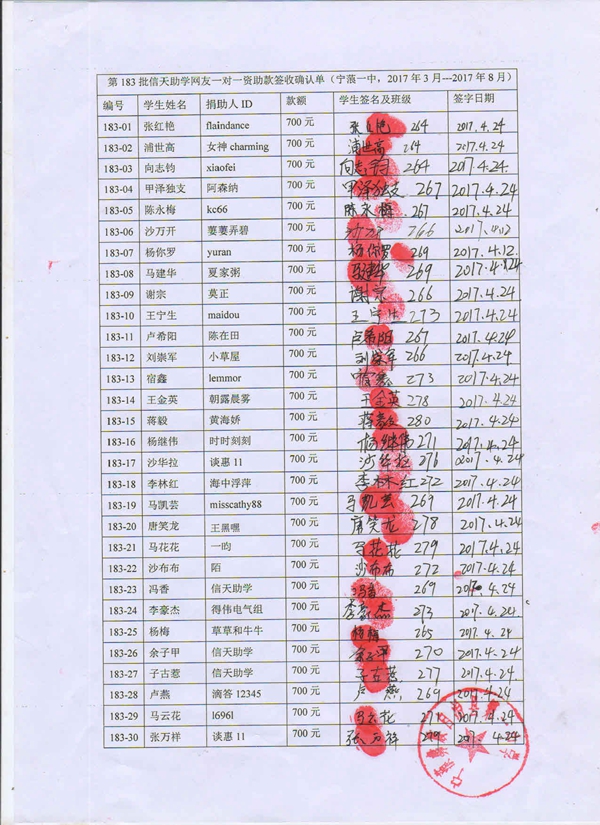 第 183 批信天助学网友一对一资助款签收确认单（宁蒗一中，2017 年 3 月---2017 年 8 月）
编号 学生姓名 捐助人 ID 款额 学生签名及班级 签字日期
183-01 张红艳 flaindance 700 元 张红艳 264 2017.4.24
183-02 浦世高 女神 charming 700 元 浦世高 264 2017.4.24
183-03 向志钧 xiaofei 700 元 向志钧 264 2017.4.24
183-04 甲泽独支 阿森纳 700 元 甲泽独支 267 2017.4.24
183-05 陈永梅 kc66 700 元 陈永梅 267 2017.4.24
183-06 沙万开 萋萋弄碧 700 元 266 2017.4.12
183-07 杨你罗 yuran 700 元 杨你罗 269 2017.4.12
183-08 马建华 夏家粥 700 元 马建华 269 2017.4.24
183-09 谢宗 莫正 700 元 谢宗 266 2017.4.24
183-10 王宁生 maidou 700 元 王宁生 273 2017.4.24
183-11 卢希阳 陈在田 700 元 卢希阳 267 2017.4.24
183-12 刘崇军 小草屋 700 元 刘崇军 266 2017.4.24
183-13 宿鑫 lemmor 700 元 宿鑫 273 2017.4.24
183-14 王金英 朝露晨雾 700 元 王金英 278 2017.4.24
183-15 蒋毅 黄海娇 700 元 蒋毅 280 2017.4.24
183-16 杨继伟 时时刻刻 700 元 杨继伟 271 2017.4.24
183-17 沙华拉 谈惠 11 700 元 沙华拉 276 2017.4.24
183-18 李林红 海中浮萍 700 元 李林红 272 2017.4.24
183-19 马凯芸 misscathy88 700 元 马凯芸 269 2017.4.24
183-20 唐笑龙 王黑嘿 700 元 唐笑龙 278 2017.4.24
183-21 马花花 一昀 700 元 马花花 279 2017.4.24
183-22 沙布布 陌 700 元 沙布布 272 2017.4.24
183-23 冯香 信天助学 700 元 冯香 269 2017.4.24
183-24 李豪杰 得伟电气组 700 元 李豪杰 273 2017.4.24
183-25 杨梅 草草和牛牛 700 元 杨梅 265 2017.4.24
183-26 余子甲 信天助学 700 元 余子甲 270 2017.4.24
183-27 子古惹 信天助学 700 元 子古惹 277 2017.4.24
183-28 卢燕 滴答 12345 700 元 卢燕 269 2017.4.24
183-29 马云花 16961 700 元 马云花 2017.4.24
183-30 张万祥 谈惠 11 700 元 张万祥 279 2017.4.24